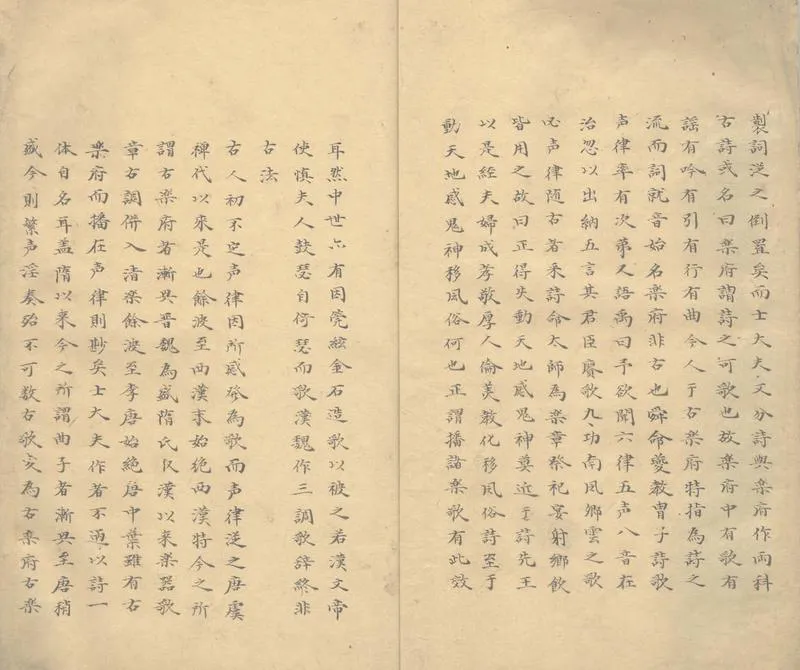 製詞從之倒置矣而士大夫又分詩與楽府作両科
古詩或名曰楽府謂詩之可歌也故楽府中有歌有
謡有吟有引有行有曲今人于古楽府特指為詩之
流而詞就音始名楽府非古也舜命夔教胄子詩歌
声律率有次第又語禹曰予欲聞六律五声八音在
治忽以出納五言其君臣賡歌九功南風卿雲之歌
必声律随古者采詩命太師為楽章祭祀宴射鄉飲
皆用之故曰正得失動天地感鬼神莫近于詩先王
以是経夫婦成孝敬厚人倫美教化移風俗詩至于
動天地感鬼神移風俗何也正謂播諸楽歌有此效
耳然中世亦有因筦絃金石造歌以被之若漢文帝
使慎夫人鼓瑟自倚瑟而歌漢魏作三調歌辞終非
古法
古人初不定声律因所感發為歌而声律從之唐虞
禅代以来是也餘波至西漢末始絶西漢時今之所
謂古楽府者漸興晋魏為盛隋氏取漢以来楽器歌
章古調併入清楽餘波至李唐始絶唐中葉雖有古
楽府而播在声律則尠矣士大夫作者不過以詩一
体自名耳盖隋以来今之所謂曲子者漸興至唐稍
盛今則繁声淫奏殆不可数古歌変為古楽府古楽